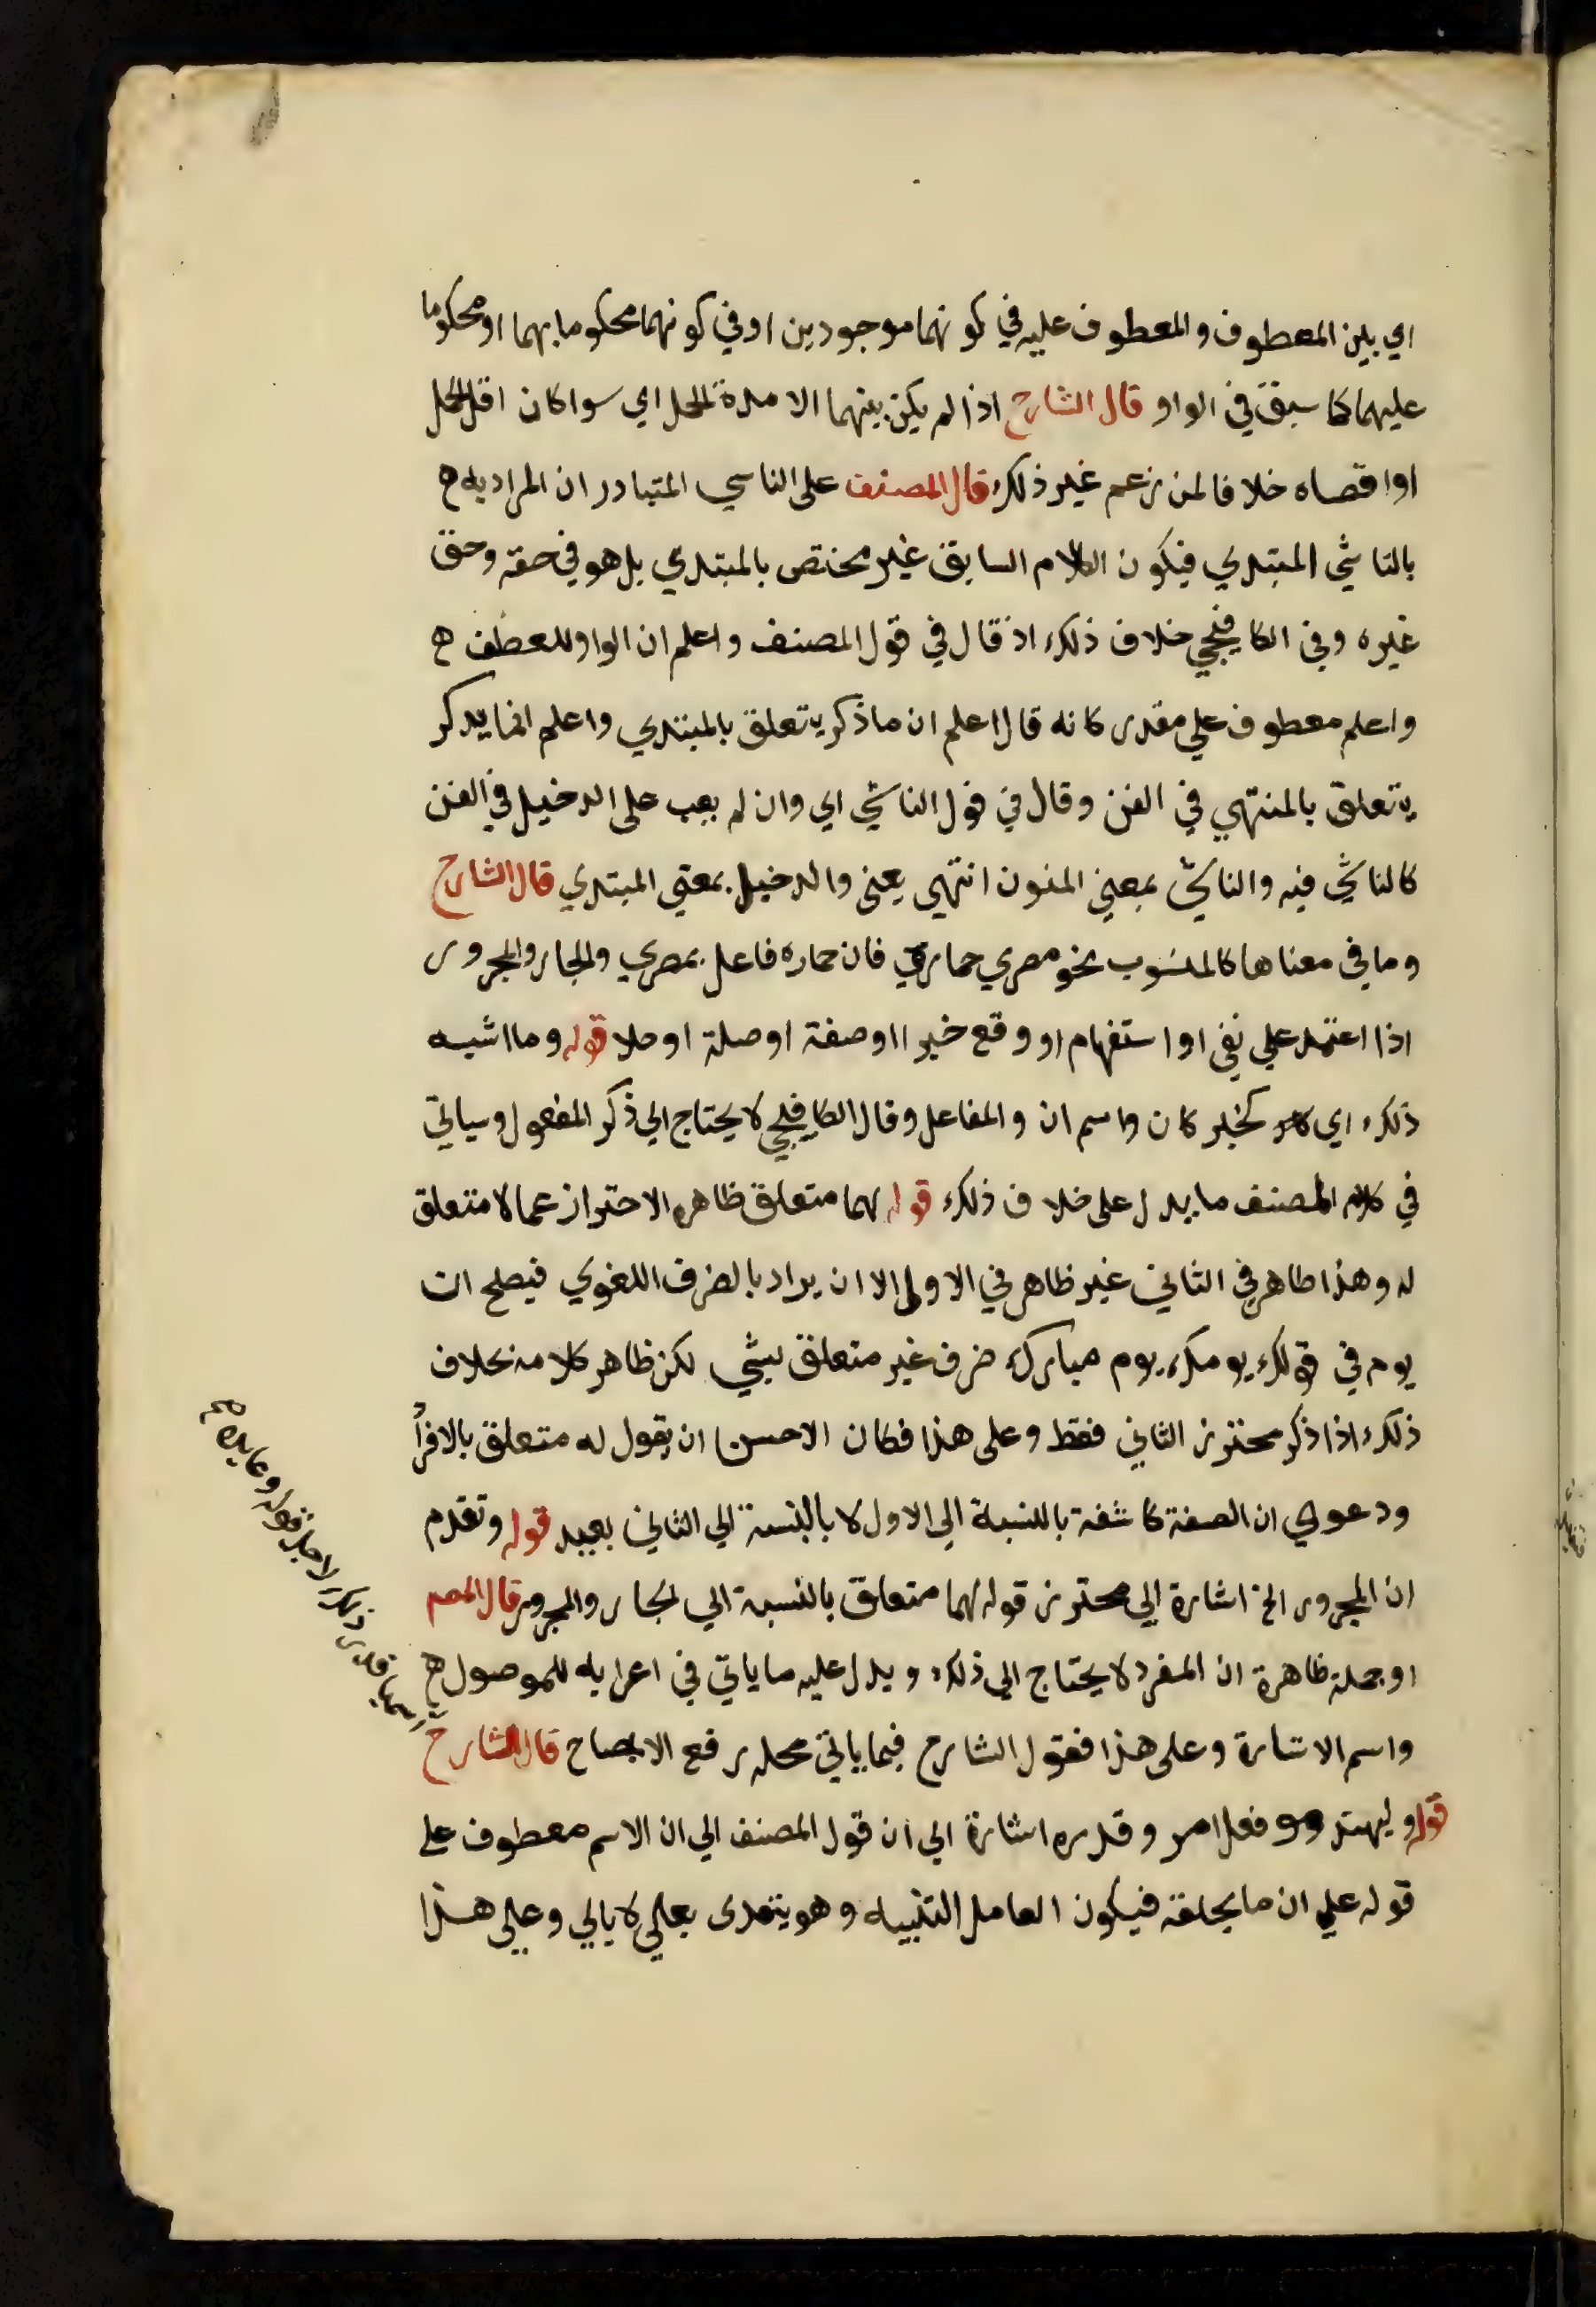 اي بين المعطوف والمعطوف عليه في كونهما موجودين او في كونهما محكوما بهما او محكوما
عليهما كما سبق في الواو قال الشارح اذا لم يكن بينهما الا مدة الحمل اي سوا كان اقل الحمل
او اقصاه خلافا لمن زعم غير ذلك قال المصنف على الناسي المتبادر ان المراد به
بالناشي المبتدي فيكون الكلام السابق غير مختص بالمبتدي بل هو في حقه وحق
غيره وفي الكافيجي خلاف ذلك اذ قال في قول المصنف واعلم ان الواو للعطف
واعلم معطوف علي مقدر كانه قال اعلم ان ما ذكر يتعلق بالمبتدي واعلم انما يدكر
يتعلق بالمنتهي في الفن وقال في قول الناشي اي وان لم يجب على الدخيل في الفن
كالناشي فيه والناشي بمعني المنون انتهى يعني والدخيل بمعني المبتدي قال الشارح
وما في معناها كالمنسوب نحو مصري حماره فان حماره فاعل بمصري والجار والمجرور
اذا اعتمد علي نفي او استفهام او وقع خبرا او صفة او صلة او حلا قوله وما اشبه
ذلك اي كخبر كان واسم ان والمفاعل وقال الكافيجي لا يحتاج الي ذكر المفعول وسياتي
في كلام المصنف ما يدل على خلاف ذلك قوله لهما متعلق ظاهره الاحتراز عما لا متعلق
له وهذا طاهر في الثاني غير ظاهر في الاول الا ان يراد بالضرف اللغوي فيصلح ان
يوم في قولك يومك يوم مبارك ضرف غير متعلق بشي لكن ظاهر كلامه خلاف
ذلك اذا ذكر محترز الثاني فقط وعلى هذا فكان الاحسن ان يقول له متعلق بالافرا
ودعوي ان الصفة كاشفة بالنسبة الي الاول لا بالنسبة الي الثاني بعيد قوله وتقدم
ان المجرور الخ اشارة الي محترز قوله لهما متعلق بالنسبة الي الجار والمجرور قال المص
او جملة ظاهرة ان المفرد لا يحتاج الي ذلك ويدل عليه ما ياتي في اعرابه للموصول
واسم الاشارة وعلى هذا فقول الشارح فيما ياتي محله رفع الايصاح قال الشارح
قوله وليهتد وهو فعل امر وقدره اشارة الي ان قول المصنف الي ان الاسم معطوف علي
قوله علي ان ما يحلقه فيكون العامل التنبيه وهو يتعدى بعلي لا بالي وعلي هذا
لاجل قوله وعايده